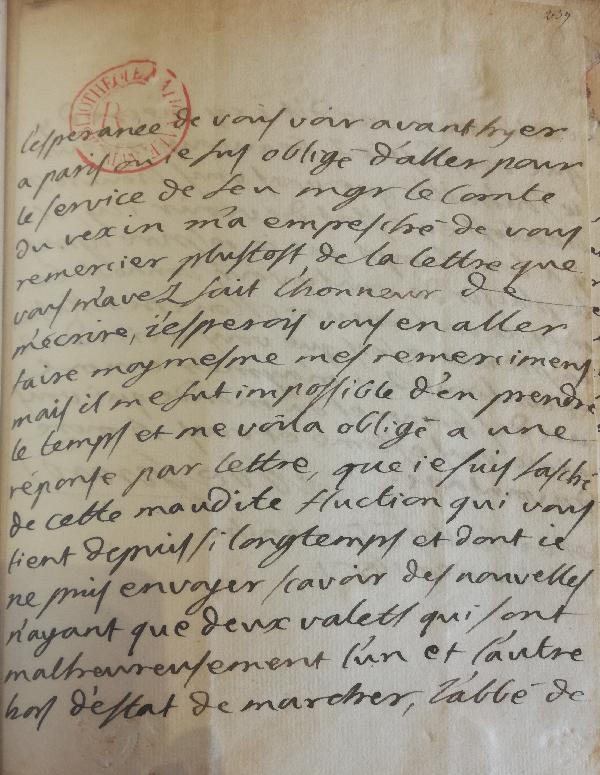 239
l'esperance de vous voir avant hyer
a paris ou ie fus obligé d'aller pour
le service de feu mgr le Comte
du vexin m'a empesché de vous
remercier plustost de la lettre que
vous m'avez fait l'honneur de
m'écrire, i'esperois vous en aller
faire moymesme mes remerciments
mais il me fut impossible d'en prendre
le temps et me voila obligé a une
réponse par lettre, que ie suis fasché
de cette maudite fluction qui vous
tient depuis si longtemps et dont ie
ne puis envoyer scavoir des nouvelles
n'ayant que deux valets qui sont
malheureusement l'un et l'autre
hors d'estat de marcher, l'abbé de